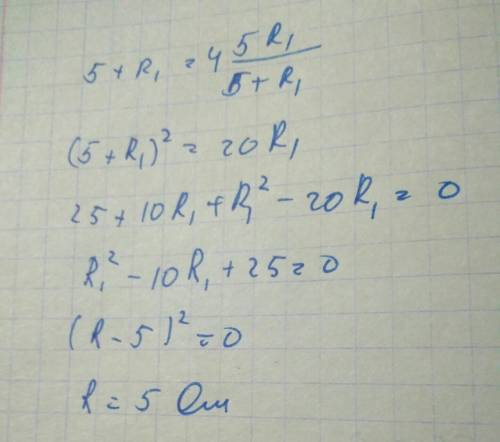 5 + R₁ = 4 5 R₁ / 5 + R₁
(5 + R₁)² = 20 R₁
25 + 10 R₁ + R₁² - 20 R₁ = 0
R₁² - 10 R₁ + 25 = 0
(R - 5)² = 0
R = 5 Ом